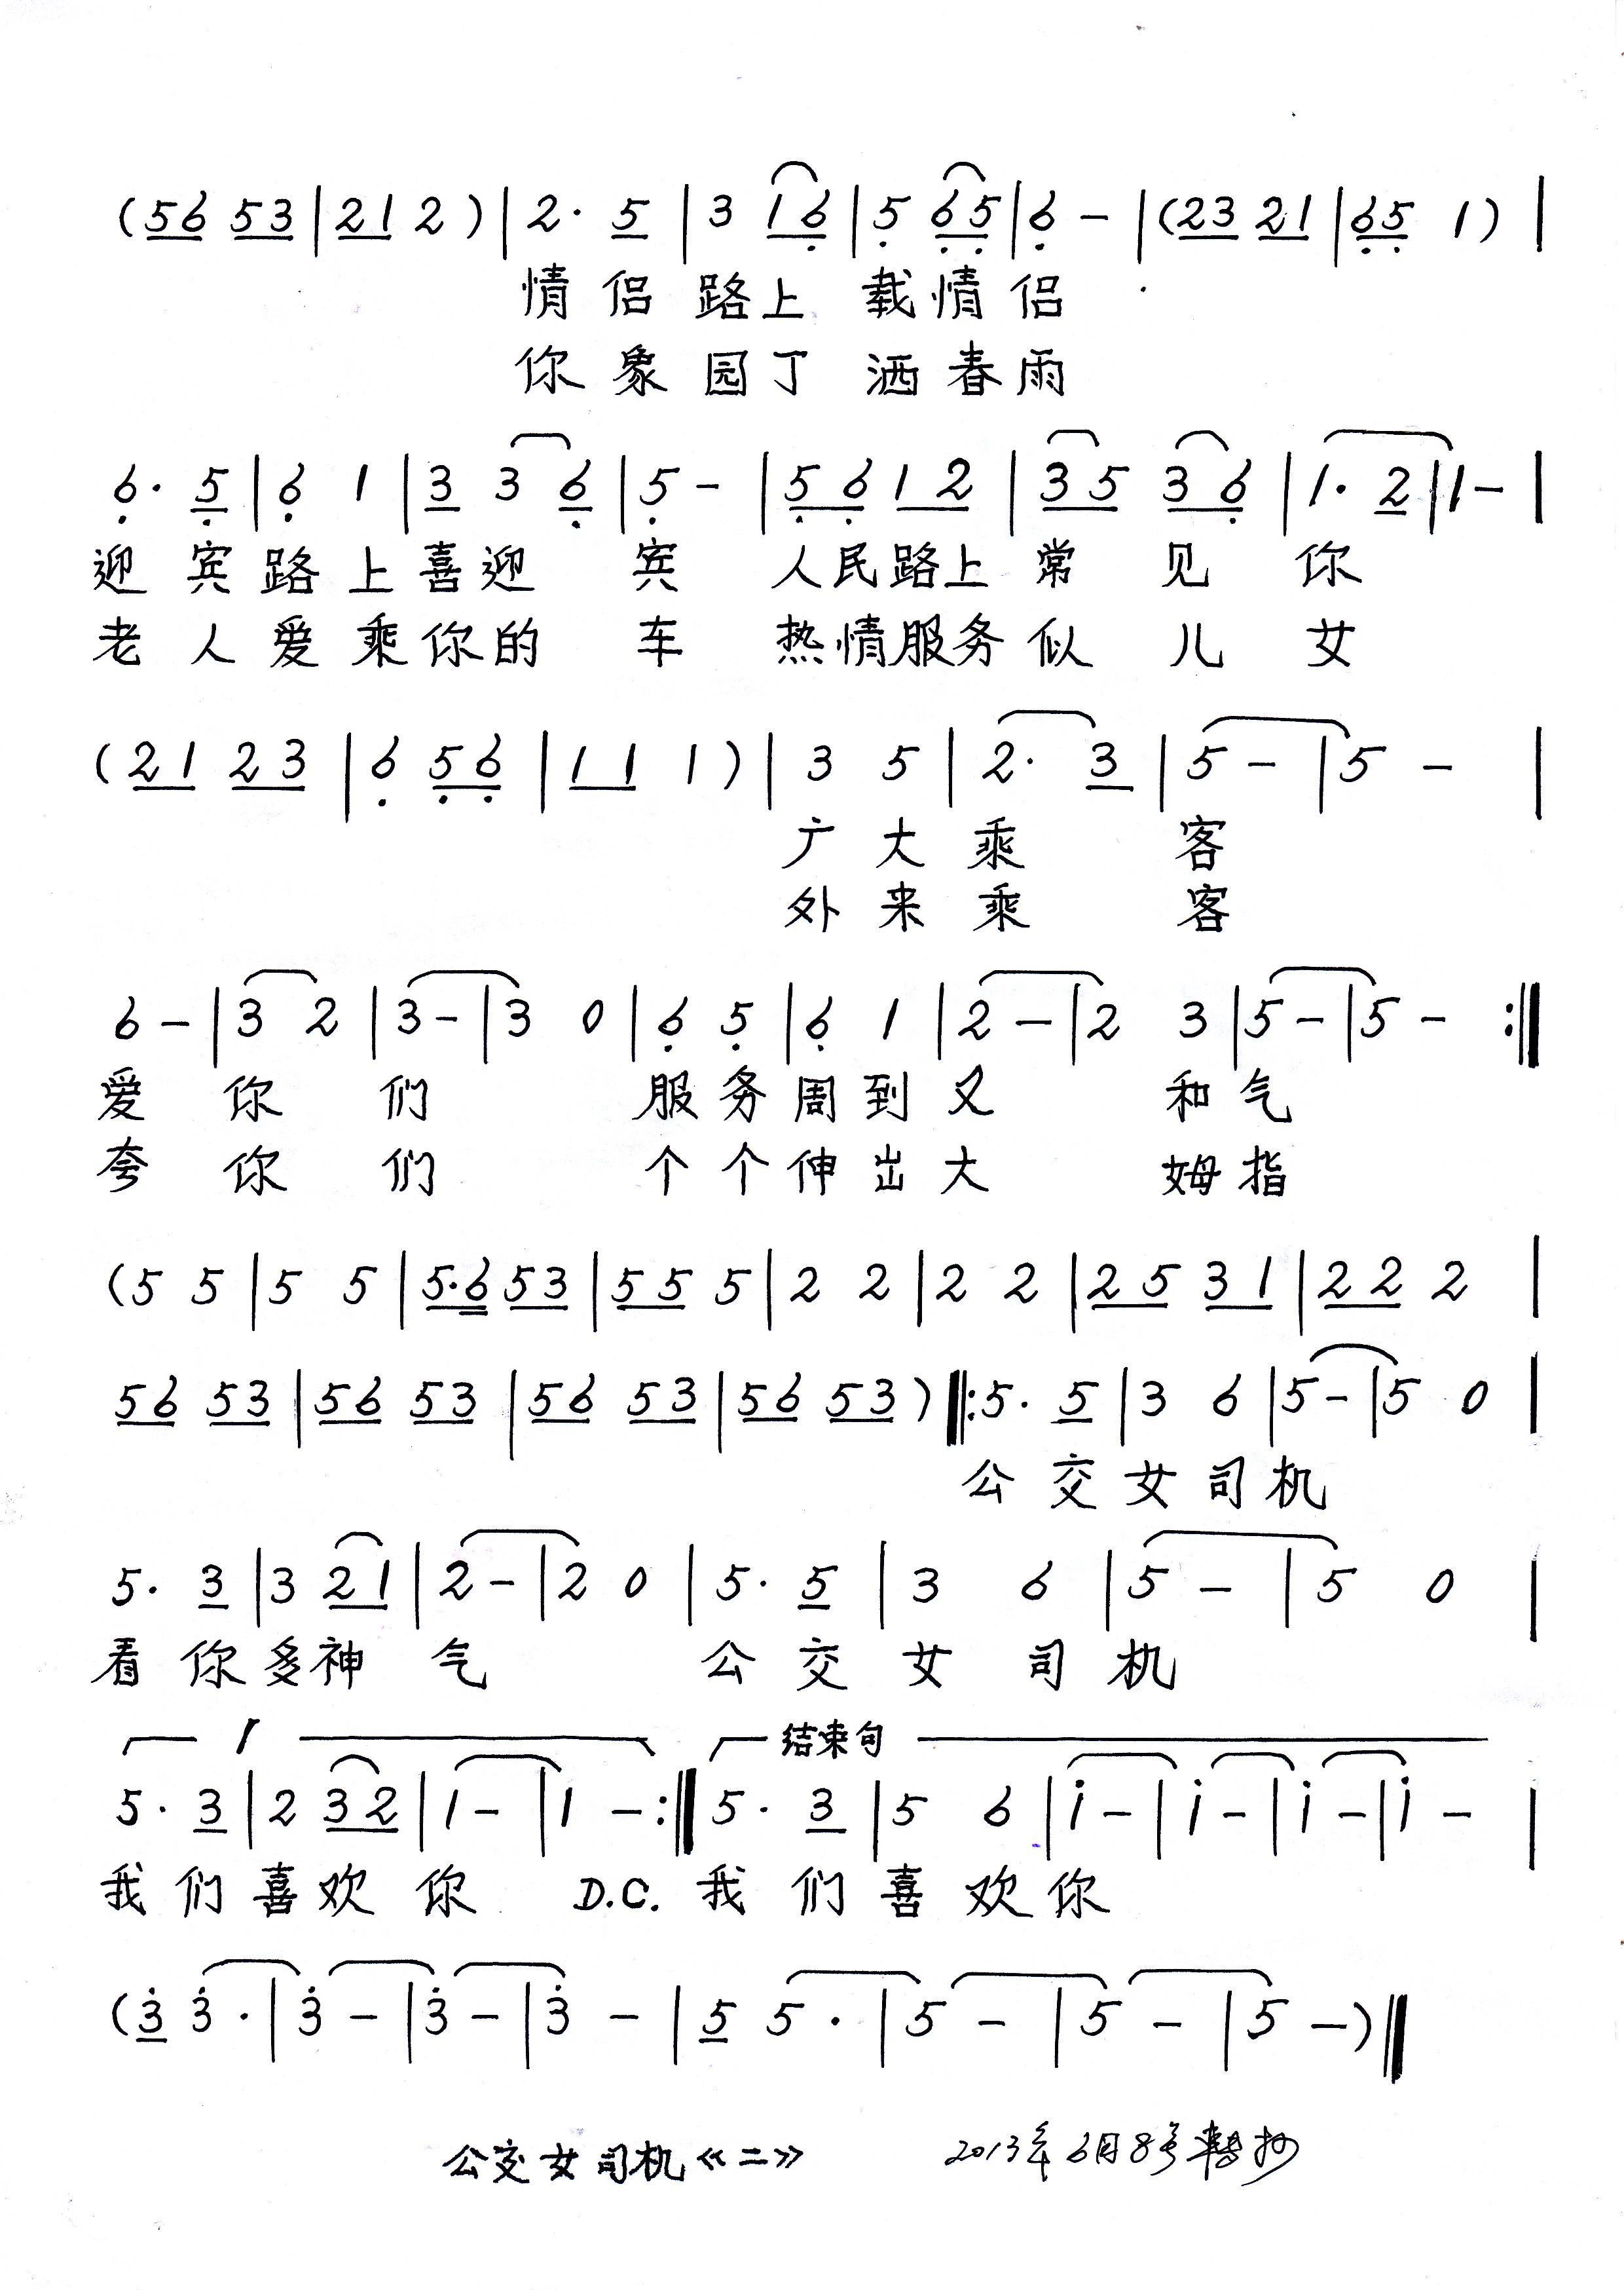 (56 53 | 21 2 ) | 2· 5 | 3 16 | 5 65 | 6 – | (23 21 | 65 1 ) |
情侣路上载情侣
你象园丁洒春雨
6· 5 | 6 1 | 3 3 6 | 5 – | 56 12 | 35 36 | 1· 2 | 1 – |
迎宾路上喜迎宾人民路上常见你
老人爱乘你的车热情服务似儿女
(21 23 | 6 56 | 11 1 ) | 3 5 | 2· 3 | 5 – | 5 – |
广大乘客
外来乘客
6 – | 3 2 | 3 – | 3 0 | 6 5 | 6 1 | 2 – | 2 3 | 5 – | 5 – :||
爱你们服务周到又和气
夸你们个个伸出大姆指
(5 5 | 5 5 | 5·6 53 | 55 5 | 2 2 | 2 2 | 25 31 | 22 2 |
56 53 | 56 53 | 56 53 | 56 53 ) ||: 5· 5 | 3 6 | 5 – | 5 0 |
公交女司机
5· 3 | 3 21 | 2 – | 2 0 | 5· 5 | 3 6 | 5 – | 5 0 |
看你多神气公交女司机
1 结束句
5· 3 | 2 32 | 1 – | 1 – :|| 5· 3 | 5 6 | i – | i – | i – | i – |
我们喜欢你 D.C. 我们喜欢你
(3 3· | 3 – | 3 – | 3 – | 5 5· | 5 – | 5 – | 5 – ) ||
公交女司机《二》 2013年6月8号转抄